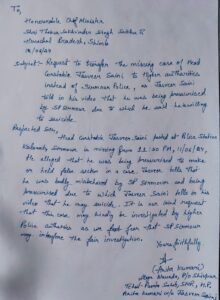 To,
Honourable Chief Minister
Shri Thakur Sukhvinder Singh Sukhu Ji
Himachal Pradesh, Shimla
12/06/24
Subject:- Request to transfer the missing case of Head
Constable Jasveer Saini to Higher authorities
instead of Sirmour Police, as Jasveer Saini
told in his video that he was being pressurised
by SP Sirmour due to which he said he
to suicide.
Respected Sir,
Head Constable Jasveer Saini posted at Police Station
Kalaamb, Sirmour is missing from 11:30 PM, 11/06/24,
He alleged that he was being pressurised to make
or held false sector in a case. Jasveer tells that
He was badly misbehaved by SP Sirmour and being
pressurised due to which Jasveer Saini tells in his
video that he may suicide. It is our kind request
that this case may kindly be investigated by higher
Police authorities as we fear that SP Sirmour
may interfere the fair investigation.
Yours faithfully
(Anita Kumari)
P/o Shivpur
Tehsil Paonta Sahib, Sirmr, H.P.
Anita Kumari w/o Jasveer Saini